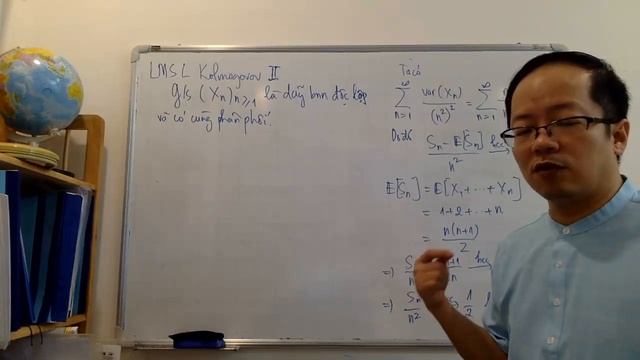 LMSL Kolmogorov II
gls (Xn)n≥1 là dãy bnn độc lập
và có cùng phân phối.
Ta có
∞ ∑ n=1 var(Xn)/(n²)² = ∞ ∑ n=1
Do đó
Sn - E[Sn]/n² hcc
E[Sn] = E[X1 + ... + Xn]
= 1+2+...+n
= n(n+1)/2
=)
=) Sn/n² 1/2